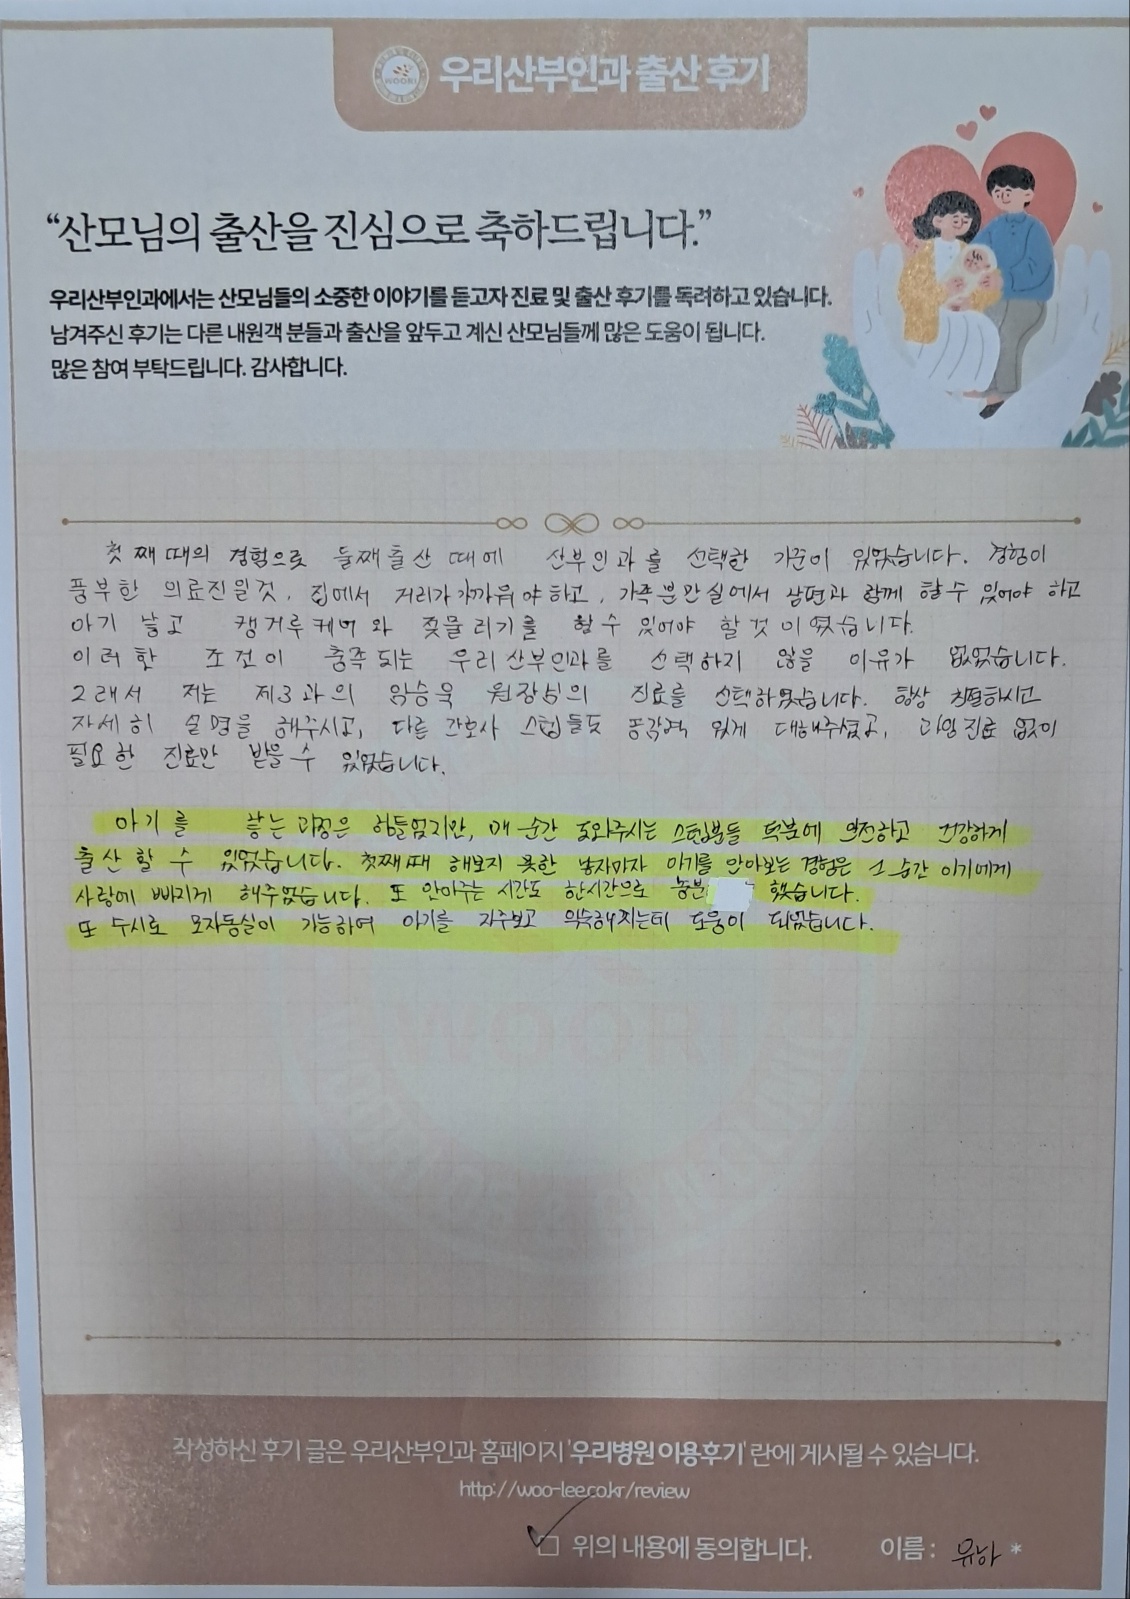 WOORI
우리산부인과 출산 후기
“산모님의 출산을 진심으로 축하드립니다.”
우리산부인과에서는 산모님들의 소중한 이야기를 듣고자 진료 및 출산 후기를 독려하고 있습니다.
남겨주신 후기는 다른 내원객 분들과 출산을 앞두고 계신 산모님들께 많은 도움이 됩니다.
많은 참여 부탁드립니다. 감사합니다.
첫째 때의 경험으로 둘째출산 때에 산부인과를 선택한 기준이 있었습니다. 경험이
풍부한 의료진일것, 집에서 거리가 가까워야하고, 가족분만실에서 남편과 함께 할수 있어야 하고
아기 낳고 캥거루케어와 젖물리기를 할수 있어야 할것이었습니다.
이러한 조건이 충족되는 우리산부인과를 선택하지 않을 이유가 없었습니다.
그래서 저는 제3과의 원장님의 진료를 선택하였습니다. 항상 친절하시고
자세히 설명을 해주시고, 다른 간호사 스텝들도 동감력 있게 대해주셨고, 과잉진료 없이
필요한 진료만 받을수 있었습니다.
아기를 낳는 과정은 힘들었지만, 매 순간 도와주시는 스텝분들 덕분에 안전하고 건강하게
출산할 수 있었습니다. 첫째때 해보지 못한 낳자마자 아기를 안아보는 경험은 그 순간 아기에게
사랑에 빠지게 해주었습니다. 또 안아주는 시간도 한시간으로 충분 했습니다.
또 수시로 모자동실이 가능하여 아기를 자주보고 익숙해지는데 도움이 되었습니다.
작성하신 후기 글은 우리산부인과 홈페이지 '우리병원 이용후기' 란에 게시될 수 있습니다.
http://woo-lee.co.kr/review
위의 내용에 동의합니다. 이름 : 유나 *